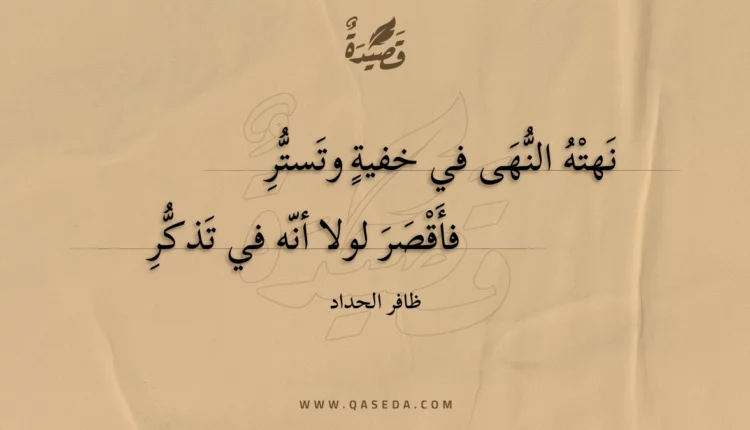 قَصِيدَةٌ
نَهتْهُ النُّهَى في خفيةٍ وتَستُّرِ
فأَقْصَرَ لولا أنّه في تَذكُّرِ
ظافر الحداد
WWW.QASEDA.COM